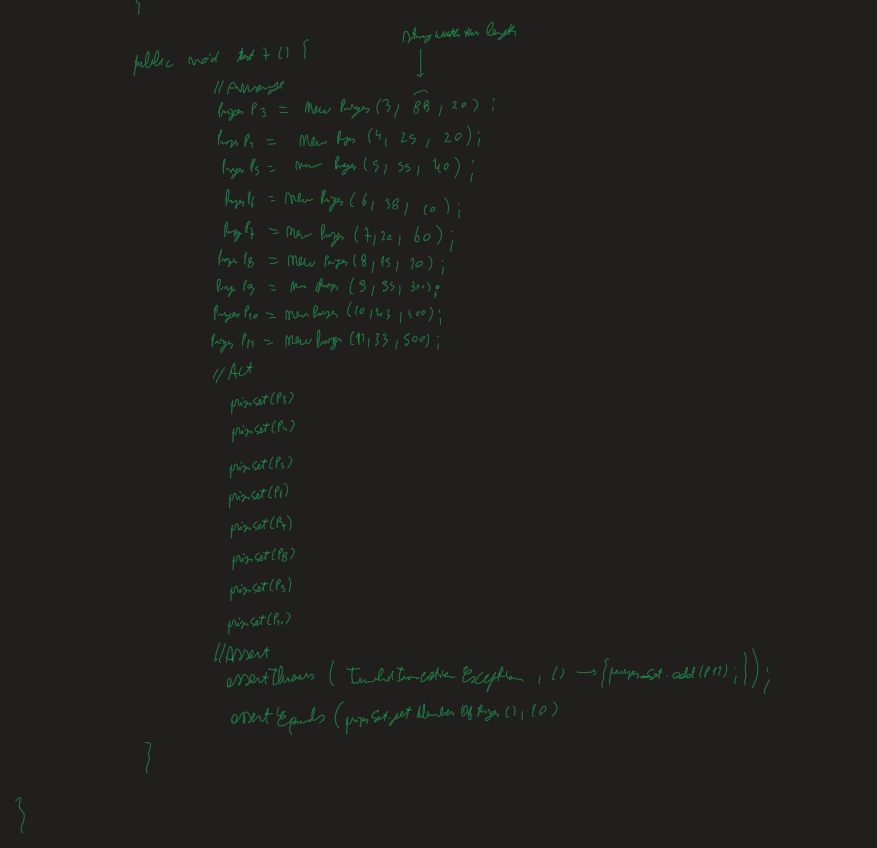 }
String with this length
public void test 7 () {
//Arrange
Prizes P3 = new Prizes (3, 88, 20) ;
Prizes P4 = new Prizes (4, 25, 20) ;
Prizes P5 = new Prizes (5, 55, 40) ;
Prizes P6 = new Prizes (6, 38, 10) ;
Prizes P7 = new Prizes (7, 20, 60) ;
Prizes P8 = new Prizes (8, 15, 70) ;
Prizes P9 = new Prizes (9, 95, 300) ;
Prizes P10 = new Prizes (10, 43, 400) ;
Prizes P11 = new Prizes (11, 33, 500) ;
//Act
prizeset(P3)
prizeset(P4)
prizeset(P5)
prizeset(P6)
prizeset(P7)
prizeset(P8)
prizeset(P9)
prizeset(P10)
//Assert
assertThrows ( Exception , () → {prizeset.add(P11) ; }) ;
assertEquals (prizeset.get Number Of Prizes (), 10)
}
}